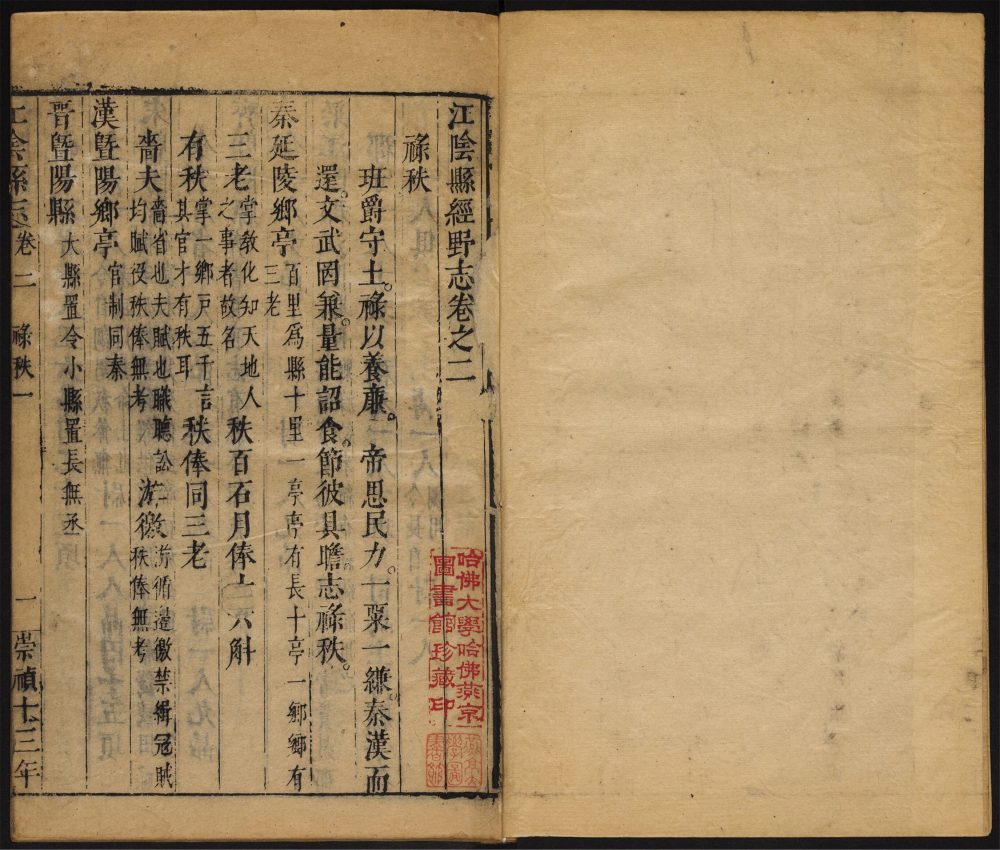 江陰縣經野志卷之二
祿秩
班爵守土祿以養廉帝思民力一粟一縑秦漢而
還文武罔兼量能詔食節彼具瞻志祿秩
秦延陵鄉亭百里爲縣十里一亭亭有長十亭一鄉鄉有
三老
三老掌敎化知天地人
之事者故名秩百石月俸十六斛
有秩掌一鄉戶五千言
其官才有秩耳秩俸同三老
嗇夫嗇省也夫賦也職聽訟
均賦役秩俸無考游徼游循邊徼禁緝冦賊
秩俸無考
漢暨陽鄉亭官制同秦
晋暨陽縣大縣置令小縣置長無丞
江陰縣志卷二 祿秩一 一 崇禎十三年
哈佛大學哈佛燕京
圖書館珍藏印